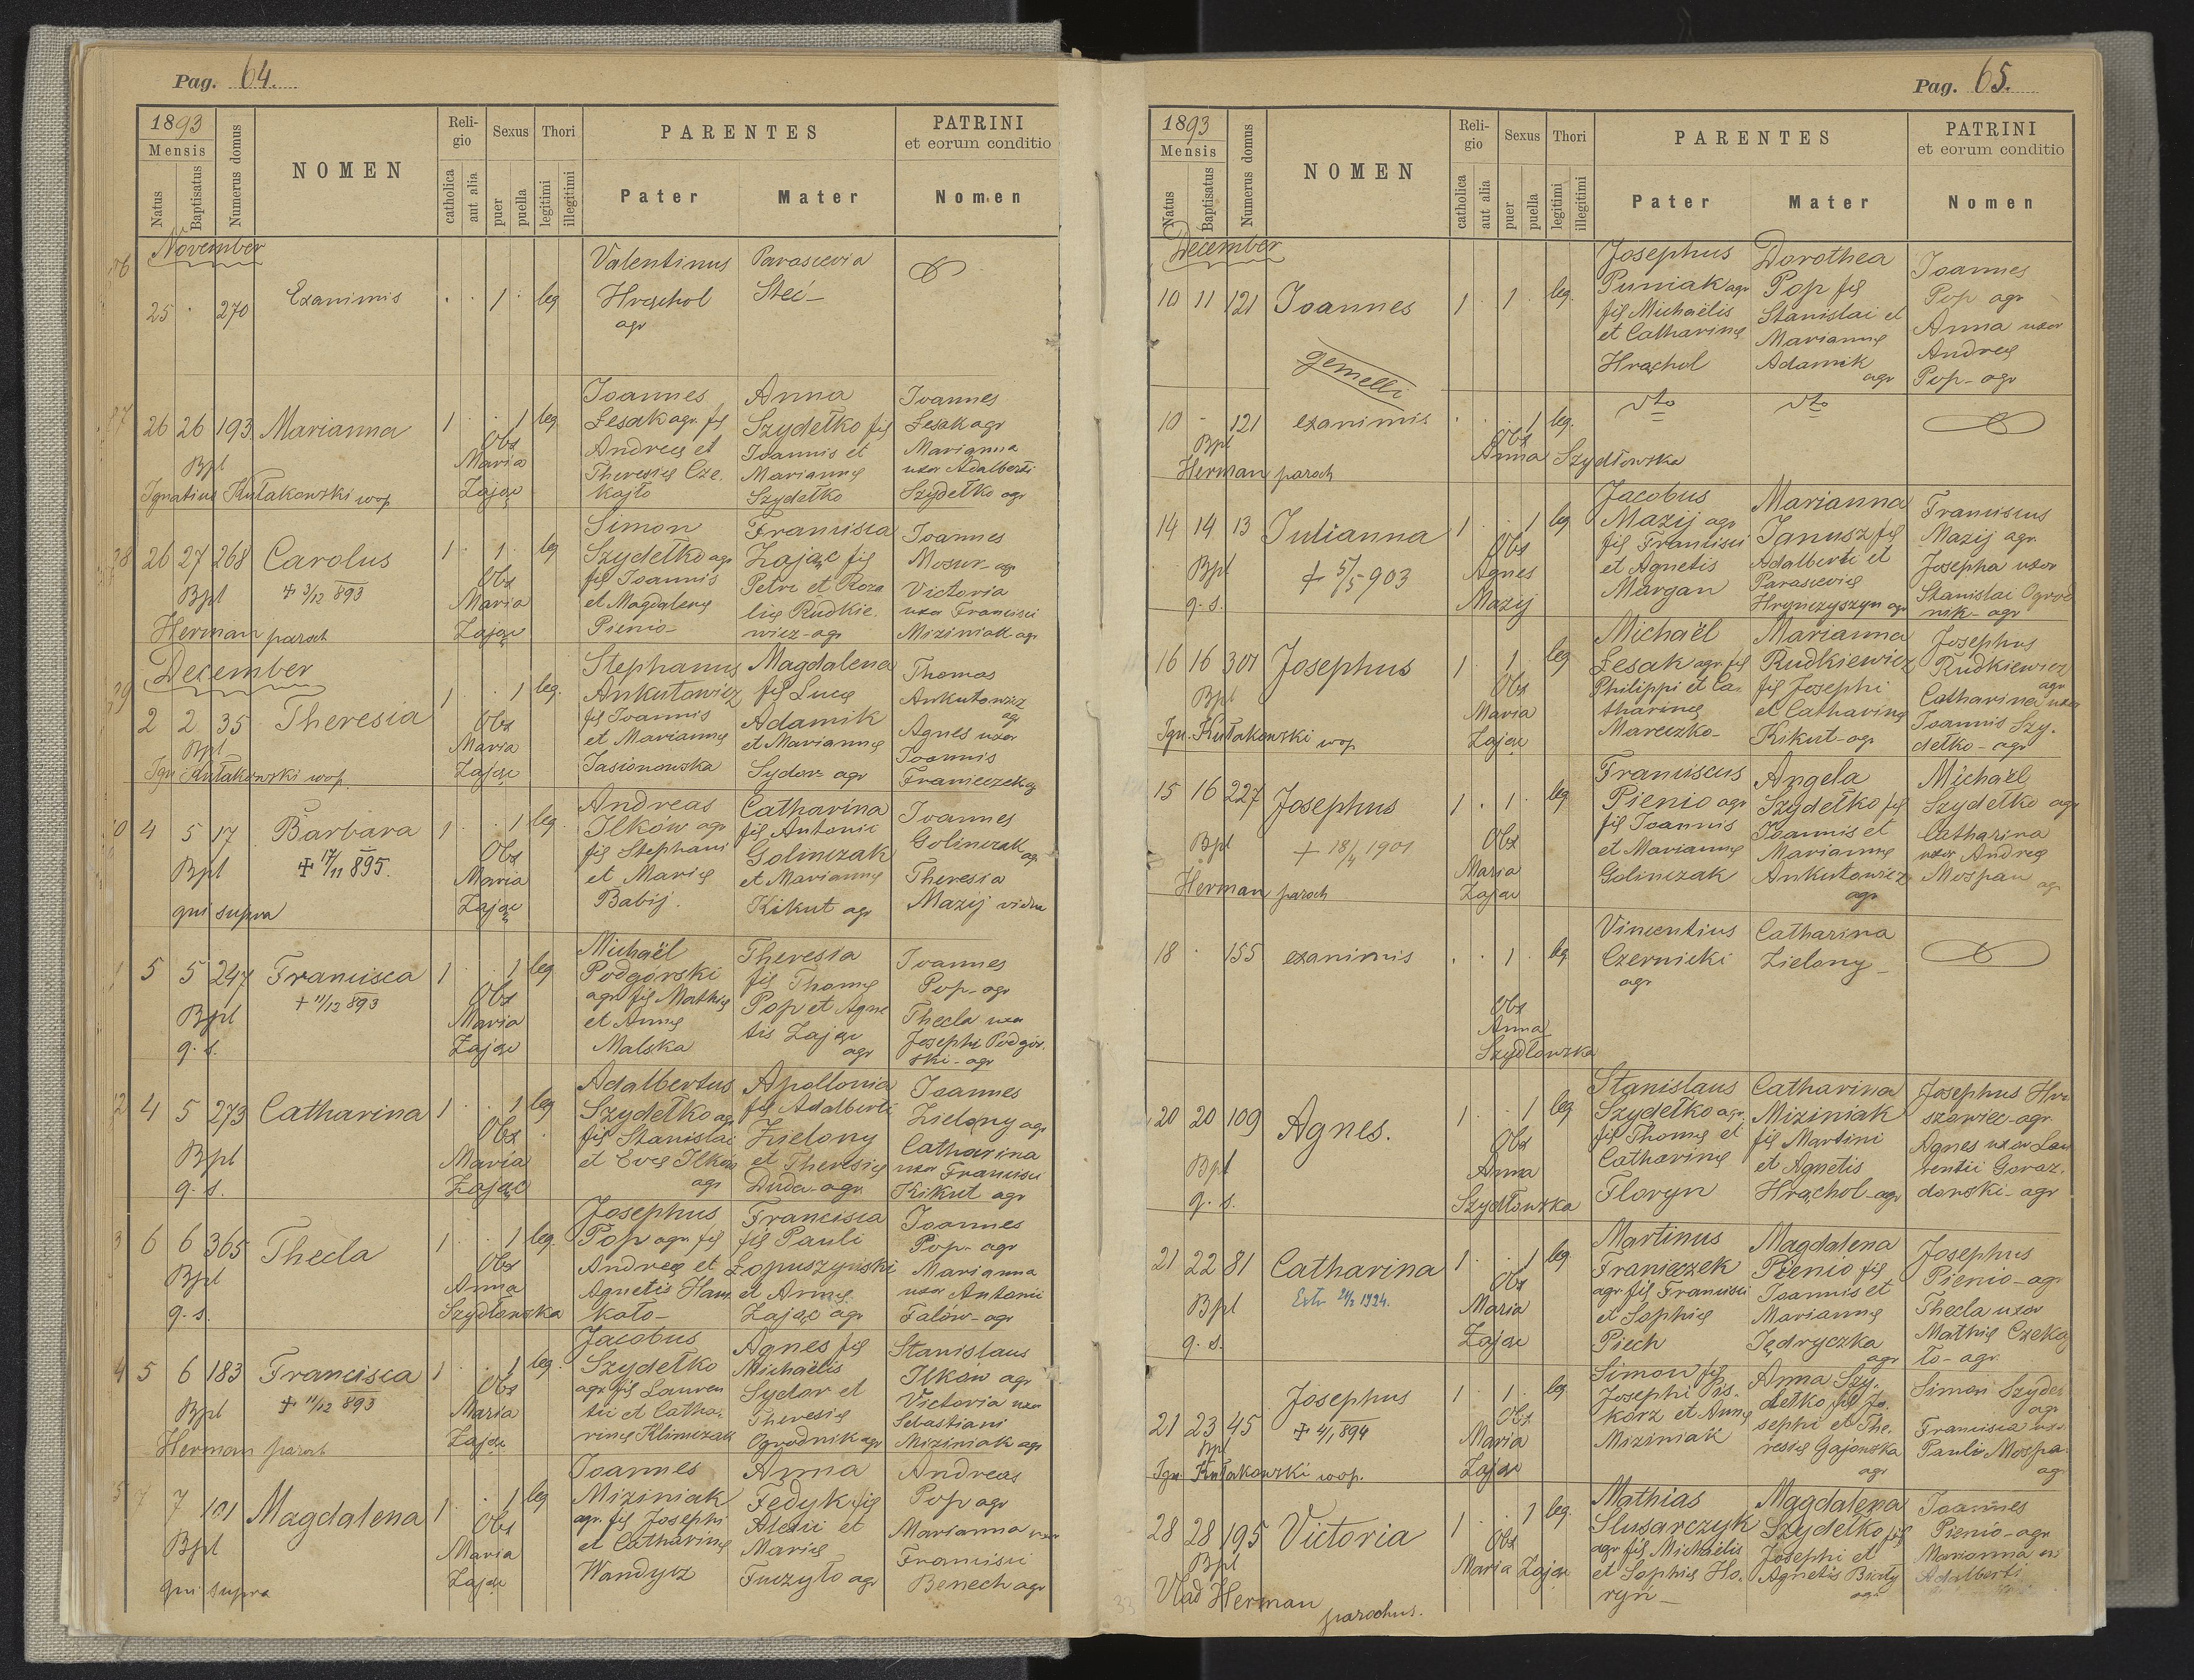 Pag. 64.
1893
Mensis
Natus
Baptisatus
Numerus domus
NOMEN
Religio
catholica
aut alia
Sexus
puer
puella
Thori
legitimi
illegitimi
PARENTES
Pater
Mater
PATRINI
et eorum conditio
Nomen
November
25 · 270 Exanimis · · 1 · leg
Valentinus
Hrąchol
agr
Parascevia
Steć-
26 26 193 Marianna 1 · · 1 leg
Bpl
Ignatius Kułakowski wop
Obs
Maria
Zając
Joannes
Lesak agr. fil
Andreę et
Theresię Cze.
kajło
Anna
Szydełko fil
Joannis et
Mariannę
Szydełko
Joannes
Lesak agr
Marianna
uxor Adalberti
Szydełko agr
26 27 268 Carolus 1 · 1 · leg
Bpl
+ 3/12 893
Herman paroch
Obs
Maria
Zając
Simon
Szydełko agr
fil Joannis
et Magdalenę
Pienio-
Francisca
Zając fil
Petri et Roza
lię Rudkie.
wicz-agr
Joannes
Mosur-agr
Victoria
uxor Francisci
Miziniak-agr
December
2 2 35 Theresia 1 · · 1 leg.
Bpl
Ign Kułakowski wop.
Obs
Maria
Zając
Stephanus
Ankutowicz
fil Joannis
et Mariannę
Jasionowska
Magdalena
fil Lucę
Adamik
et Mariannę
Sydor agr
Thomas
Ankutowicz
agr
Agnes uxor
Joannis
Franieczek agr
4 5 17 Barbara 1 · · 1 leg.
Bpl
+ 17/11 895.
qui supra
Obs
Maria
Zając
Andreas
Ilków agr
fil Stephani
et Marię
Babij.
Catharina
fil Antonii
Golinczak
et Mariannę
Kikut agr
Joannes
Golinczak
agr
Theresia
Mazij vidua
5 5 247 Francisca 1 · · 1 leg
Bpl
+ 11/12 893
q. s.
Obs
Maria
Zając
Michaël
Podgórski
agr fil Mathię
et Annę
Malska
Theresia
fil Thomę
Pop et Agne
tis Zając
agr
Joannes
Pop-agr
Thecla uxor
Josephi Podgór.
ski-agr
4 5 273 Catharina 1 · · 1 leg
Bpl
q. s.
Obs
Maria
Zając
Adalbertus
Szydełko agr
fil Stanislai
et Evę Ilków
agr
Apollonia
fil Adalberti
Zielony
et Theresię
Duda-agr
Joannes
Zielony agr
Catharina
uxor Francisci
Kikut agr
6 6 365 Thecla 1 · · 1 leg.
Bpl
q. s.
Obs
Anna
Szydłowska
Josephus
Pop agr fil
Andreę et
Agnetis Haw
koło-
Francisca
fil Pauli
Łopuszyński
et Annę
Zając agr
Joannes
Pop-agr
Marianna
uxor Antonii
Falów-agr
5 6 183 Francisca 1 · · 1 leg.
Bpl
+ 11/12 893
Herman paroch
Obs
Maria
Zając
Jacobus
Szydełko
agr fil Lauren
tii et Catha.
rinę Klimczak
Agnes fil
Michaëlis
Sydor et
Theresię
Ogrodnik agr
Stanislaus
Ilków agr
Victoria uxor
Sebastiani
Miziniak agr
7 7 101 Magdalena 1 · · 1 leg
Bpl
qui supra
Obs
Maria
Zając
Joannes
Miziniak
agr. fil Josephi
et Catharinę
Wandycz
Anna
Fedyk fil
Alexii et
Marię
Fuczyło agr
Andreas
Pop agr
Marianna uxor
Francisci
Benech agr
Pag. 65.
1893
Mensis
Natus
Baptisatus
Numerus domus
NOMEN
Religio
catholica
aut alia
Sexus
puer
puella
Thori
legitimi
illegitimi
PARENTES
Pater
Mater
PATRINI
et eorum conditio
Nomen
December
10 11 121 Joannes 1 · 1 · leg.
gemelli
Josephus
Puniak agr
fil Michaëlis
et Catharinę
Hrąchol
Dorothea
Pop fil
Stanislai et
Mariannę
Adamik
agr
Joannes
Pop agr
Anna uxor
Andreę
Pop-agr
10 - 121 exanimis · · · 1 leg.
Bpl
Herman paroch
Obs
Anna Szydłowska
dto
dto
14 14 13 Julianna 1 · · 1 leg
Bpl
+ 5/5 903
q. s.
Obs
Agnes
Mazij
Jacobus
Mazij agr
fil Francisci
et Agnetis
Margan
Marianna
Janusz fil
Adalberti et
Parascevię
Hrynczyszyn agr
Franciscus
Mazij agr
Josepha uxor
Stanislai Ogrod
nik-agr
16 16 301 Josephus 1 · 1 · leg
Bpl
Ign. Kułakowski wop
Obs
Maria
Zając
Michaël
Lesak agr. fil
Philippi et Ca-
tharinę
Mareczko-
Marianna
Rudkiewicz
fil Josephi
et Catharinę
Kikut-agr
Josephus
Rudkiewicz
agr
Catharina uxor
Joannis Szy.
dełko-agr
15 16 227 Josephus 1 · 1 · leg
Bpl
+ 18/4 1901
Herman paroch
Obs
Maria
Zając
Franciscus
Pienio agr
fil Joannis
et Mariannę
Golinczak
Angela
Szydełko fil
Joannis et
Mariannę
Ankutowicz
agr
Michaël
Szydełko agr
Catharina
uxor Andreę
Mospan agr
18 · 155 exanimis · · 1 · leg
Obs
Anna
Szydłowska
Vincentius
Czernicki
agr
Catharina
Zielony-
20 20 109 Agnes. 1 · · 1 leg
Bpl
q. s.
Obs
Anna
Szydłowska
Stanislaus
Szydełko agr.
fil Thomę et
Catharinę
Floryn
Catharina
Miziniak
fil Martini
et Agnetis
Hrąchol-agr
Josephus Hru
szowiec-agr
Agnes uxor Lau
rentii Goraz.
dowski-agr
21 22 81 Catharina 1 · · 1 leg.
Bpl
Extr 24/2 1924.
q. s.
Obs
Maria
Zając
Martinus
Franieczek
agr fil Francisci
et Sophię
Piech
Magdalena
Pienio fil
Joannis et
Mariannę
Jędryczka
agr
Josephus
Pienio-agr
Thecla uxor
Mathię Czekaj
ło-agr
21 23 45 Josephus 1 · 1 · leg
Bpl
+ 4/1 894
Ign. Kułakowski wop.
Obs
Maria
Zając
Simon fil
Josephi Pis-
korz et Annę
Miziniak
Anna Szy.
dełko fil Jo.
sephi et The.
resię Gajowska
agr
Simon Szydeł
agr
Francisca uxor
Pauli Mospa
agr
28 28 195 Victoria 1 · · 1 leg.
Bpl
Vlad Herman parochus.
Obs
Maria Zając
Mathias
Slusarczyk
agr fil Michaëlis
et Sophię Ho.
ryń-
Magdalena
Szydełko fil
Josephi et
Agnetis Biały
agr
Joannes
Pienio-agr
Marianna u:
Adalberti